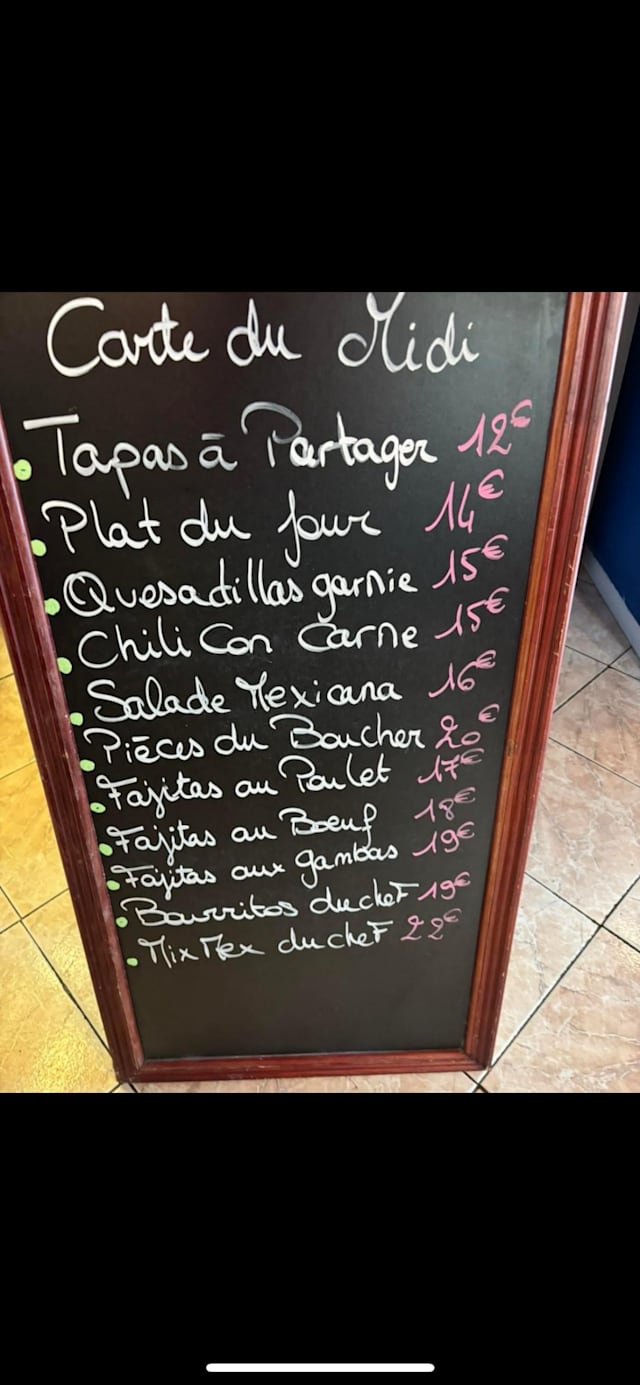 Carte du Midi
Tapas à Partager 12€
Plat du jour 14€
Quesadillas garnie 15€
Chili Con Carne 15€
Salade Mexicana 16€
Pièces du Boucher 20€
Fajitas au Poulet 17€
Fajitas au Boeuf 18€
Fajitas aux gambas 19€
Bourritos du chef 19€
Mix Mex du chef 22€